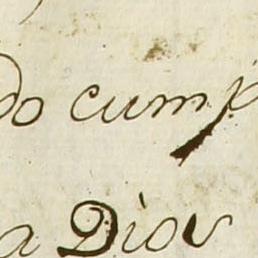 do cump
a Dios